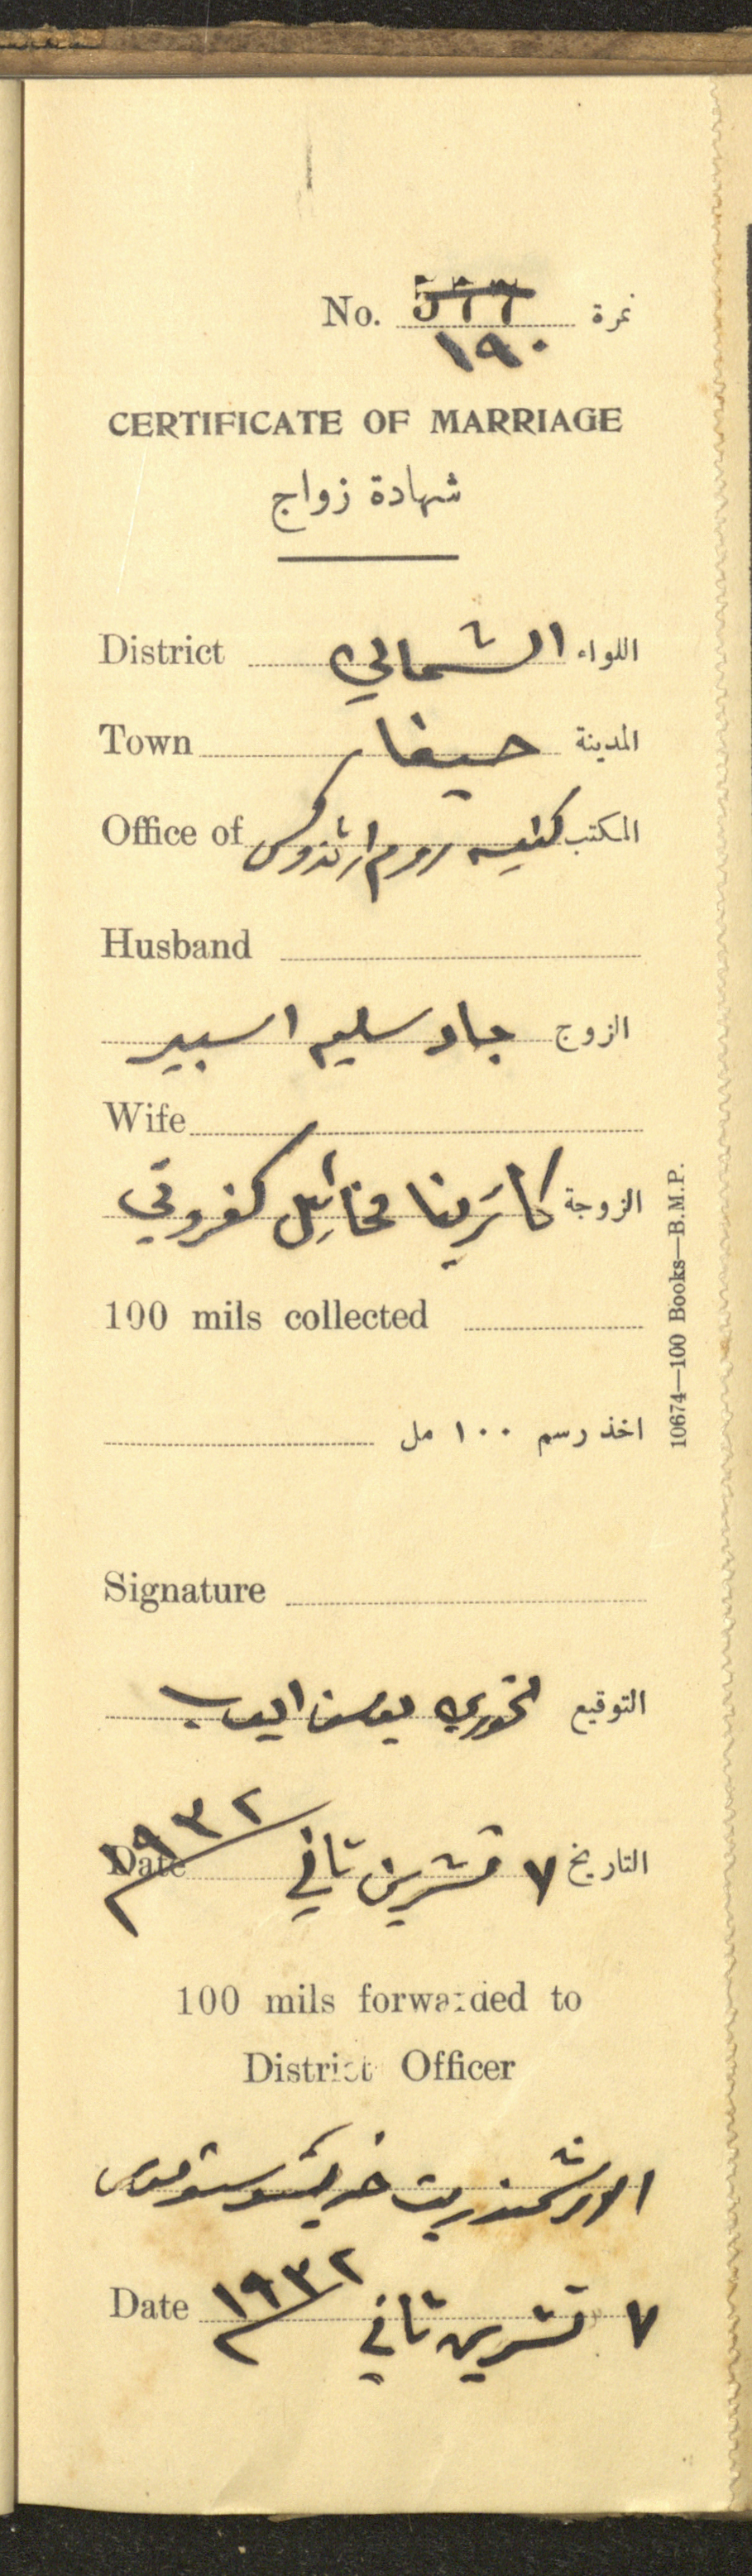 No. 577 نمرة
١٩٠
CERTIFICATE OF MARRIAGE
شهادة زواج
District الشمالي اللواء
Town حيفا المدينة
Office of كنيسة روم ارثذوكس المكتب
Husband
الزوج جاد سليم اسبير
Wife
الزوجة كاترينا مخائيل كفروني
100 mils collected
اخذ رسم ١٠٠ مل
Signature
التوقيع الخوري يوسف ايوب
Date ٧ تشرين ثاني ١٩٣٢ التاريخ
100 mils forwarded to
District Officer
الارشمندريت خريستوفورس
Date ٧ تشرين ثاني ١٩٣٢
10674—100 Books—B.M.P.